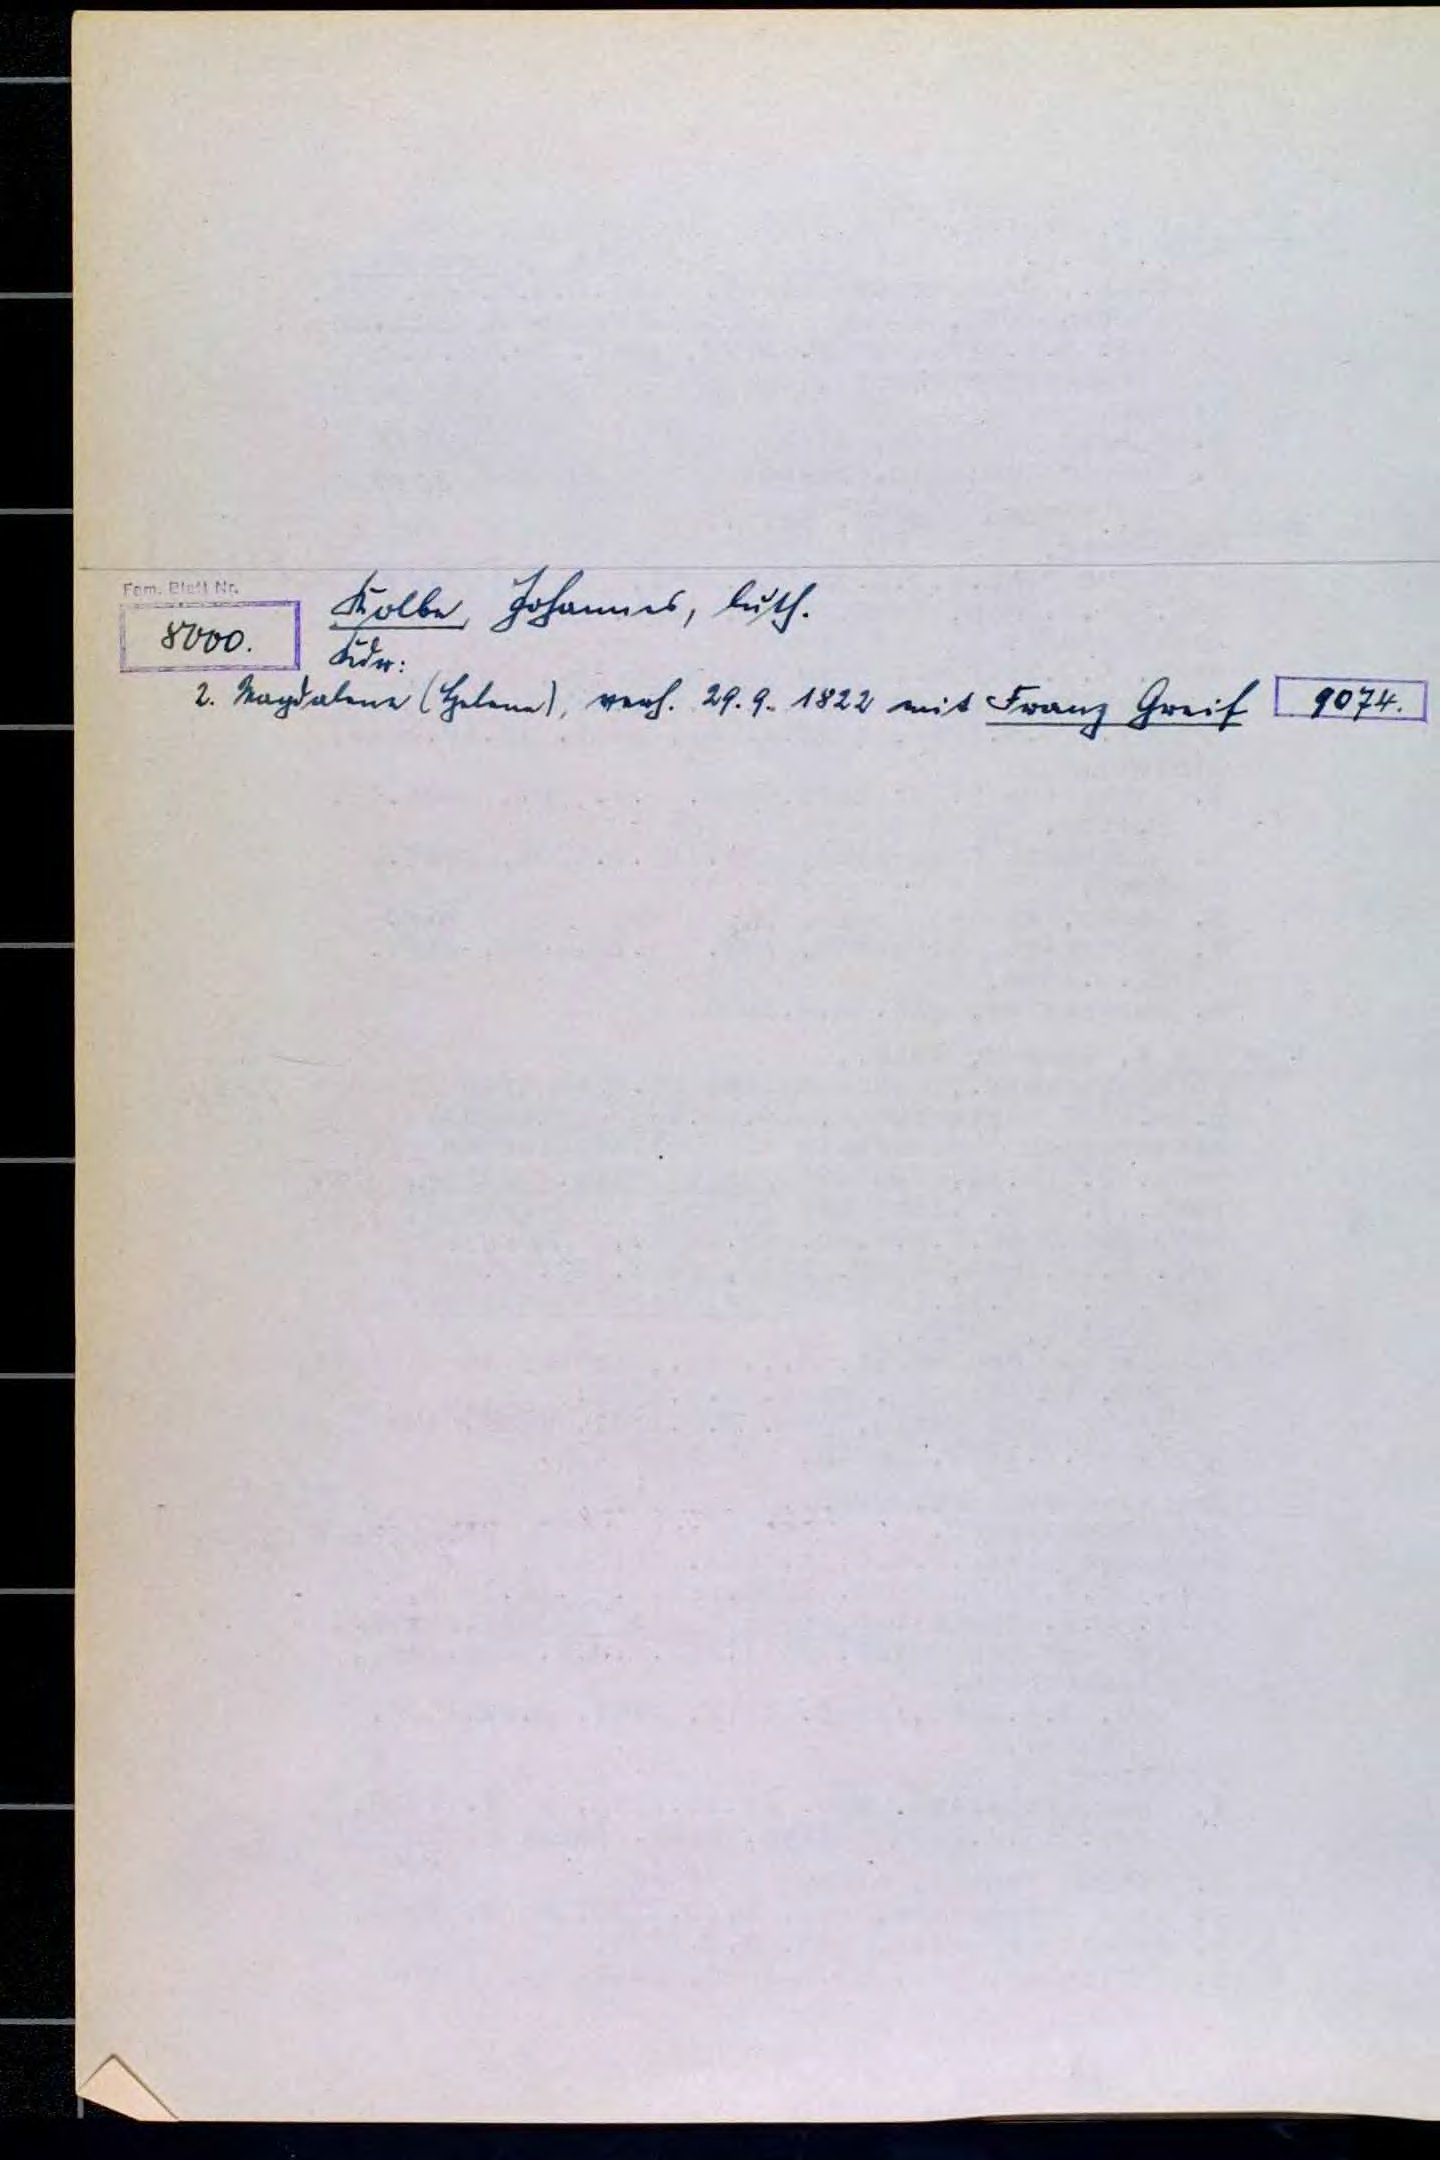 Fam. Blatt Nr.
8000.
Kolbe, Johannes, luth.
Kdr:
2. Magdalene (Helene), verh. 29. 9. 1822 mit Franz Greif 9074.